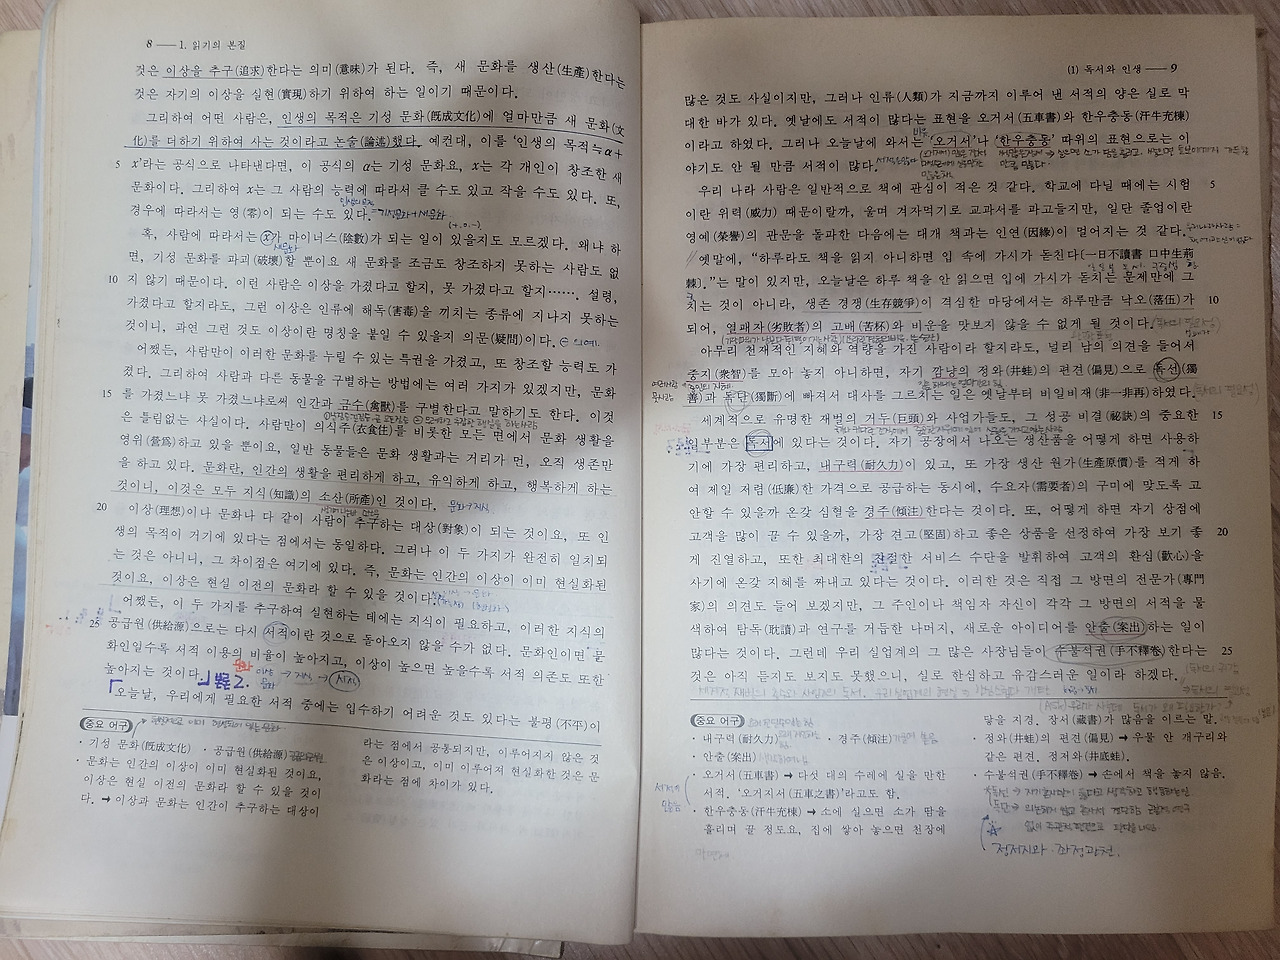 8 ── 1. 읽기의 본질
것은 이상을 추구(追求)한다는 의미(意味)가 된다. 즉, 새 문화를 생산(生產)한다는
것은 자기의 이상을 실현(實現)하기 위하여 하는 일이기 때문이다.
그리하여 어떤 사람은, 인생의 목적은 기성 문화(旣成文化)에 얼마만큼 새 문화(文
化)를 더하기 위하여 사는 것이라고 논술(論述)했다. 예컨대, 이를 '인생의 목적≒α+
5 x'라는 공식으로 나타낸다면, 이 공식의 α는 기성 문화요, x는 각 개인이 창조한 새
문화이다. 그리하여 x는 그 사람의 능력에 따라서 클 수도 있고 작을 수도 있다. 또,
경우에 따라서는 영(零)이 되는 수도 있다. =기성문화+새문화
혹, 사람에 따라서는 x가 마이너스(陰數)가 되는 일이 있을지도 모르겠다. 왜냐 하
면, 기성 문화를 파괴(破壞)할 뿐이요 새 문화를 조금도 창조하지 못하는 사람도 없
10 지 않기 때문이다. 이런 사람은 이상을 가졌다고 할지, 못 가졌다고 할지……. 설령,
가졌다고 할지라도, 그런 이상은 인류에 해독(害毒)을 끼치는 종류에 지나지 못하는
것이니, 과연 그런 것도 이상이란 명칭을 붙일 수 있을지 의문(疑問)이다.
어쨌든, 사람만이 이러한 문화를 누릴 수 있는 특권을 가졌고, 또 창조할 능력도 가
졌다. 그리하여 사람과 다른 동물을 구별하는 방법에는 여러 가지가 있겠지만, 문화
15 를 가졌느냐 못 가졌느냐로써 인간과 금수(禽獸)를 구별한다고 말하기도 한다. 이것
은 틀림없는 사실이다. 사람만이 의식주(衣食住)를 비롯한 모든 면에서 문화 생활을
영위(營爲)하고 있을 뿐이요, 일반 동물들은 문화 생활과는 거리가 먼, 오직 생존만
을 하고 있다. 문화란, 인간의 생활을 편리하게 하고, 유익하게 하고, 행복하게 하는
것이니, 이것은 모두 지식(知識)의 소산(所產)인 것이다. 문화→지식
20 이상(理想)이나 문화나 다 같이 사람이 추구하는 대상(對象)이 되는 것이요, 또 인
생의 목적이 거기에 있다는 점에서는 동일하다. 그러나 이 두 가지가 완전히 일치되
는 것은 아니니, 그 차이점은 여기에 있다. 즉, 문화는 인간의 이상이 이미 현실화된
것이요, 이상은 현실 이전의 문화라 할 수 있을 것이다.
어쨌든, 이 두 가지를 추구하여 실현하는 데에는 지식이 필요하고, 이러한 지식의
25 공급원(供給源)으로는 다시 서적이란 것으로 돌아오지 않을 수가 없다. 문화인이면 문
화인일수록 서적 이용의 비율이 높아지고, 이상이 높으면 높을수록 서적 의존도 또한
높아지는 것이다. 이상 문화 → 지식 → 서적
오늘날, 우리에게 필요한 서적 중에는 입수하기 어려운 것도 있다는 불평(不平)이
중요 어구
· 기성 문화(旣成文化) · 공급원(供給源)
· 문화는 인간의 이상이 이미 현실화된 것이요,
이상은 현실 이전의 문화라 할 수 있을 것이
다. → 이상과 문화는 인간이 추구하는 대상이
라는 점에서 공통되지만, 이루어지지 않은 것
은 이상이고, 이미 이루어져 현실화한 것은 문
화라는 점에 차이가 있다.
(1) 독서와 인생 ── 9
많은 것도 사실이지만, 그러나 인류(人類)가 지금까지 이루어 낸 서적의 양은 실로 막
대한 바가 있다. 옛날에도 서적이 많다는 표현을 오거서(五車書)와 한우충동(汗牛充棟)
이라고 하였다. 그러나 오늘날에 와서는 '오거서'나 '한우충동' 따위의 표현으로는 이
야기도 안 될 만큼 서적이 많다.
우리 나라 사람은 일반적으로 책에 관심이 적은 것 같다. 학교에 다닐 때에는 시험 5
이란 위력(威力) 때문이랄까, 울며 겨자먹기로 교과서를 파고들지만, 일단 졸업이란
영예(榮譽)의 관문을 돌파한 다음에는 대개 책과는 인연(因緣)이 멀어지는 것 같다.
옛말에, "하루라도 책을 읽지 아니하면 입 속에 가시가 돋친다(一日不讀書 口中生荊
棘)."는 말이 있지만, 오늘날은 하루 책을 안 읽으면 입에 가시가 돋치는 문제만에 그
치는 것이 아니라, 생존 경쟁(生存競爭)이 격심한 마당에서는 하루만큼 낙오(落伍)가 10
되어, 열패자(劣敗者)의 고배(苦杯)와 비운을 맛보지 않을 수 없게 될 것이다.
아무리 천재적인 지혜와 역량을 가진 사람이라 할지라도, 널리 남의 의견을 들어서
중지(衆智)를 모아 놓지 아니하면, 자기 깜냥의 정와(井蛙)의 편견(偏見)으로 독선(獨
善)과 독단(獨斷)에 빠져서 대사를 그르치는 일은 옛날부터 비일비재(非一非再)하였다.
세계적으로 유명한 재벌의 거두(巨頭)와 사업가들도, 그 성공 비결(秘訣)의 중요한 15
일부분은 독서에 있다는 것이다. 자기 공장에서 나오는 생산품을 어떻게 하면 사용하
기에 가장 편리하고, 내구력(耐久力)이 있고, 또 가장 생산 원가(生產原價)를 적게 하
여 제일 저렴(低廉)한 가격으로 공급하는 동시에, 수요자(需要者)의 구미에 맞도록 고
안할 수 있을까 온갖 심혈을 경주(傾注)한다는 것이다. 또, 어떻게 하면 자기 상점에
고객을 많이 끌 수 있을까, 가장 견고(堅固)하고 좋은 상품을 선정하여 가장 보기 좋 20
게 진열하고, 또한 최대한의 친절한 서비스 수단을 발휘하여 고객의 환심(歡心)을
사기에 온갖 지혜를 짜내고 있다는 것이다. 이러한 것은 직접 그 방면의 전문가(專門
家)의 의견도 들어 보겠지만, 그 주인이나 책임자 자신이 각각 그 방면의 서적을 물
색하여 탐독(耽讀)과 연구를 거듭한 나머지, 새로운 아이디어를 안출(案出)하는 일이
많다는 것이다. 그런데 우리 실업계의 그 많은 사장님들이 수불석권(手不釋卷)한다는 25
것은 아직 듣지도 보지도 못했으니, 실로 한심하고 유감스러운 일이라 하겠다.
중요 어구
· 내구력(耐久力) · 경주(傾注)
안출(案出)
· 오거서(五車書) → 다섯 대의 수레에 실을 만한
서적. '오거지서(五車之書)'라고도 함.
· 한우충동(汗牛充棟) → 소에 실으면 소가 땀을
흘리며 끌 정도요, 집에 쌓아 놓으면 천장에
닿을 지경. 장서(藏書)가 많음을 이르는 말.
· 정와(井蛙)의 편견(偏見) → 우물 안 개구리와
같은 편견. 정저와(井底蛙).
· 수불석권(手不釋卷) → 손에서 책을 놓지 않음.
정저지와 · 좌정관천.